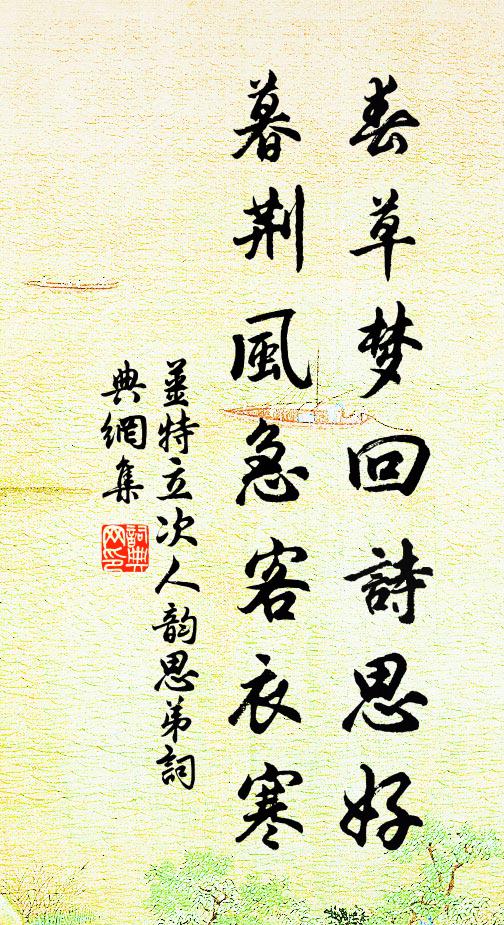 春草梦回詩思好
暮荆風急客衣寒
姜特立次人韵思弟詞
典網集
詞典
网印